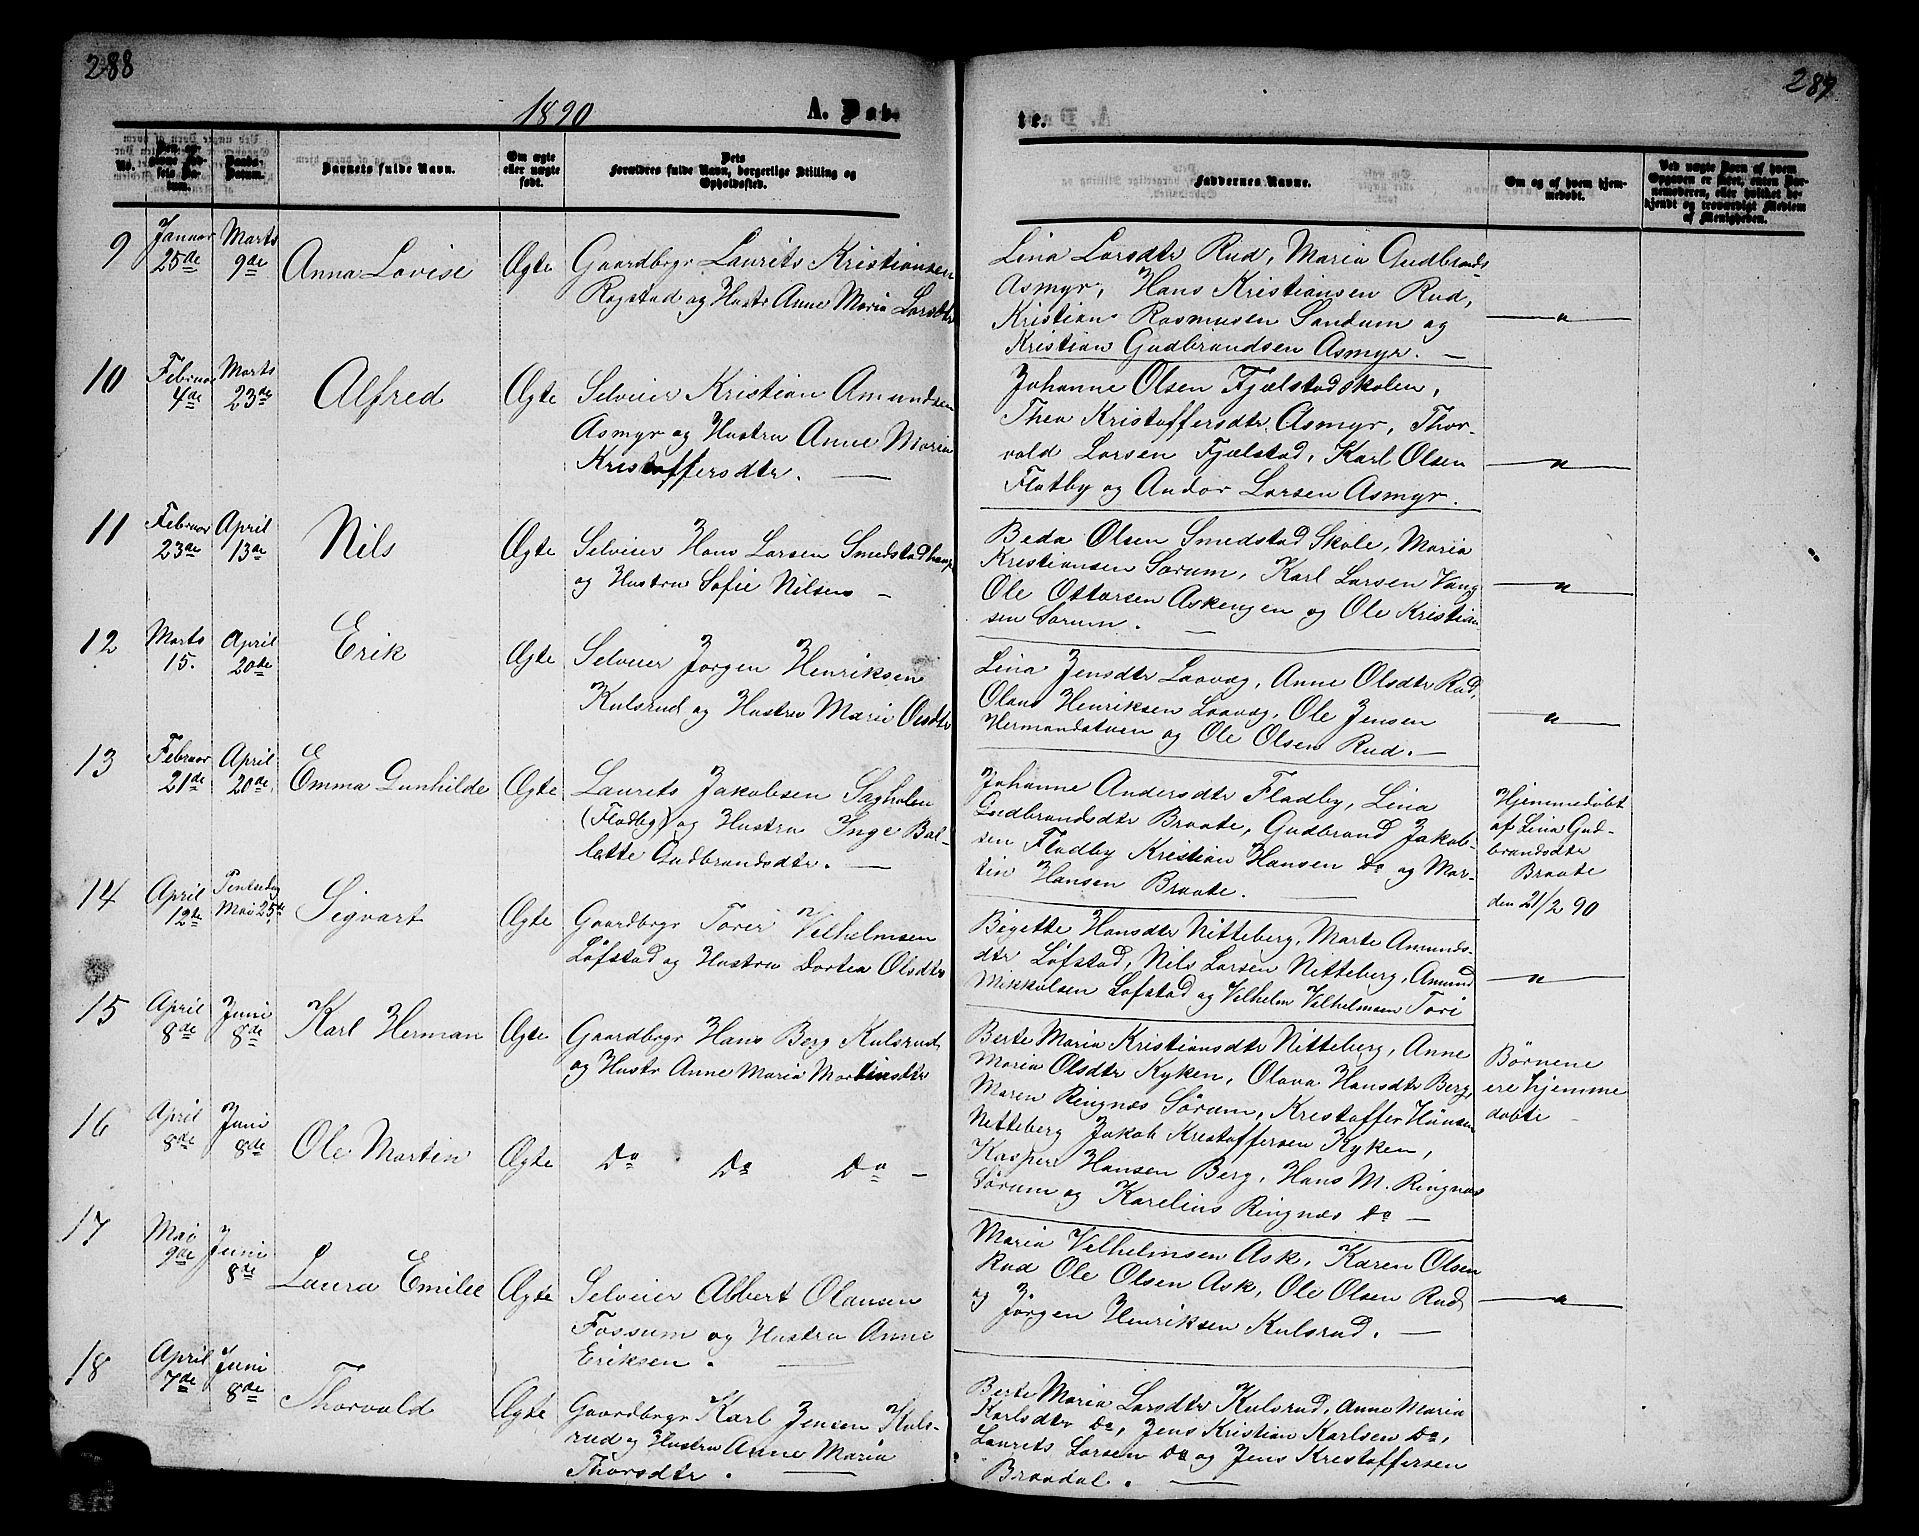 288
1890
A. Døb-
No.
Barnets fulde Navn.
Om ægte
eller uægte
født.
Forældres fulde Navn, borgerlige Stilling og
Opholdssted.
9
Januar
25de
Marts
9de
Anna Lovise
Ægte
Gaardbrgr Laurits Kristiansen
Rogstad og Hustr Anne Maria Larsdtr
10
Februar
4de
Marts
23de
Alfred
Ægte
Selveier Kristian Amundsen
Asmyr og Hustru Anne Maria
Kristoffersdtr. —
11
Februar
23de
April
13de
Nils
Ægte
Selveier Hans Larsen Smedstadhaug
og Hustru Sofie Nilsen —
12
Marts
15.
April
20de
Erik
Ægte
Selveier Jørgen Henriksen
Kulsrud og Hustru Maria Olsdtr
13
Februar
21de
April
20de
Emma Gunhilde
Ægte
Laurits Jakobsen Sagholen
(Fladby) og Hustru Inge Bal-
lette Gudbrandsdtr. —
14
April
12te
Pintsedag
Mai 25de
Sigvart
Ægte
Gaardbrgr Torer Vilhelmsen
Løfstad og Hustru Dortea Olsdtr
15
April
8de
Juni
8de
Karl Herman
Ægte
Gaardbrgr Hans Berg Kulsrud
og Hustr Anne Maria Martinsdtr
16
April
8de
Juni
8de
Ole Martin
Ægte
Do Do Do —
17
Mai
9de
Juni
8de
Laura Emilie
Ægte
Selveier Albert Olausen
Fossum og Hustru Anne
Eriksen. —
18
April
7de
Juni
8de
Thorvald
Ægte
Gaardbrgr Karl Jensen Kuls-
rud og Hustru Anne Maria
Thorsdtr. —
289
te.
Faddernes Navne.
Om og af hvem hjem-
medøbt.
Ved uægte Børn af hvem
Opgaven er skeet, enten Bar-
nemoderen, eller hvilket be-
kjendt og troværdigt Medlem
af Menigheden.
Lina Larsdtr Rud, Maria Gudbrands
Asmyr, Hans Kristiansen Rud,
Kristian Rasmusen Sandum og
Kristian Gudbrandsen Asmyr. —
— " —
Johanne Olsen Fjælstadskolen,
Thea Kristoffersdtr Asmyr, Thor-
vald Larsen Fjælstad, Karl Olsen
Flatby og Andor Larsen Asmyr.
— " —
Beda Olsen Smedstad Skole, Maria
Kristiansen Sørum, Karl Larsen Vang
Ole Ottarsen Askengen og Ole Kristian
sen Sørum. —
— " —
Lina Jensdtr Laavag, Anne Olsdtr Rud,
Olaus Henriksen Laavag, Ole Jensen
Hermandstuen og Ole Olsen Rud. —
— " —
Johanne Andersdtr Fladby, Lina
Gudbrandsdtr Braate, Gudbrand Jakob-
sen Fladby Kristian Hansen Do og Mar-
tin Hansen Braate. —
Hjemmedøbt
af Lina Gud-
brandsdtr
Braate
den 21/2 90
Bigette Hansdtr Nitteberg, Marte Amunds-
dtr Løfstad, Nils Larsen Nitteberg, Amund
Mikkelsen Løfstad og Vilhelm Vilhelmsen Tori
— " —
Berte Maria Kristiansdtr Nitteberg, Anne
Maria Olsdtr Kyken, Olava Hansdtr Berg,
Maren Ringnæs Sørum, Kristoffer Hansen
Nitteberg Jakob Kristoffersen Kyken,
Kasper Hansen Berg, Hans M. Ringnæs
Sørum og Karelius Ringnæs Do —
Børnene
ere hjemme
døbte —
Maria Vilhelmsen Ask, Karen Olsen
Rud Ole Olsen Ask, Ole Olsen Rud
og Jørgen Henriksen Kulsrud. —
— " —
Berte Maria Larsdtr Kulsrud, Anne Maria
Karlsdtr Do, Jens Kristian Karlsen Do,
Laurits Larsen Do og Jens Kristoffersen
Braadal. —